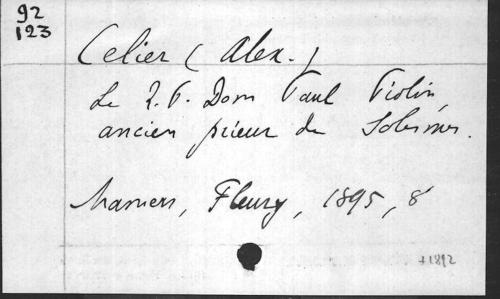 92
123
Celier (Alex.)
Le R. P. Dom Paul Piolin,
ancien prieur de Solesmes.
Mamers, Fleury, 1895, 8°
+1892